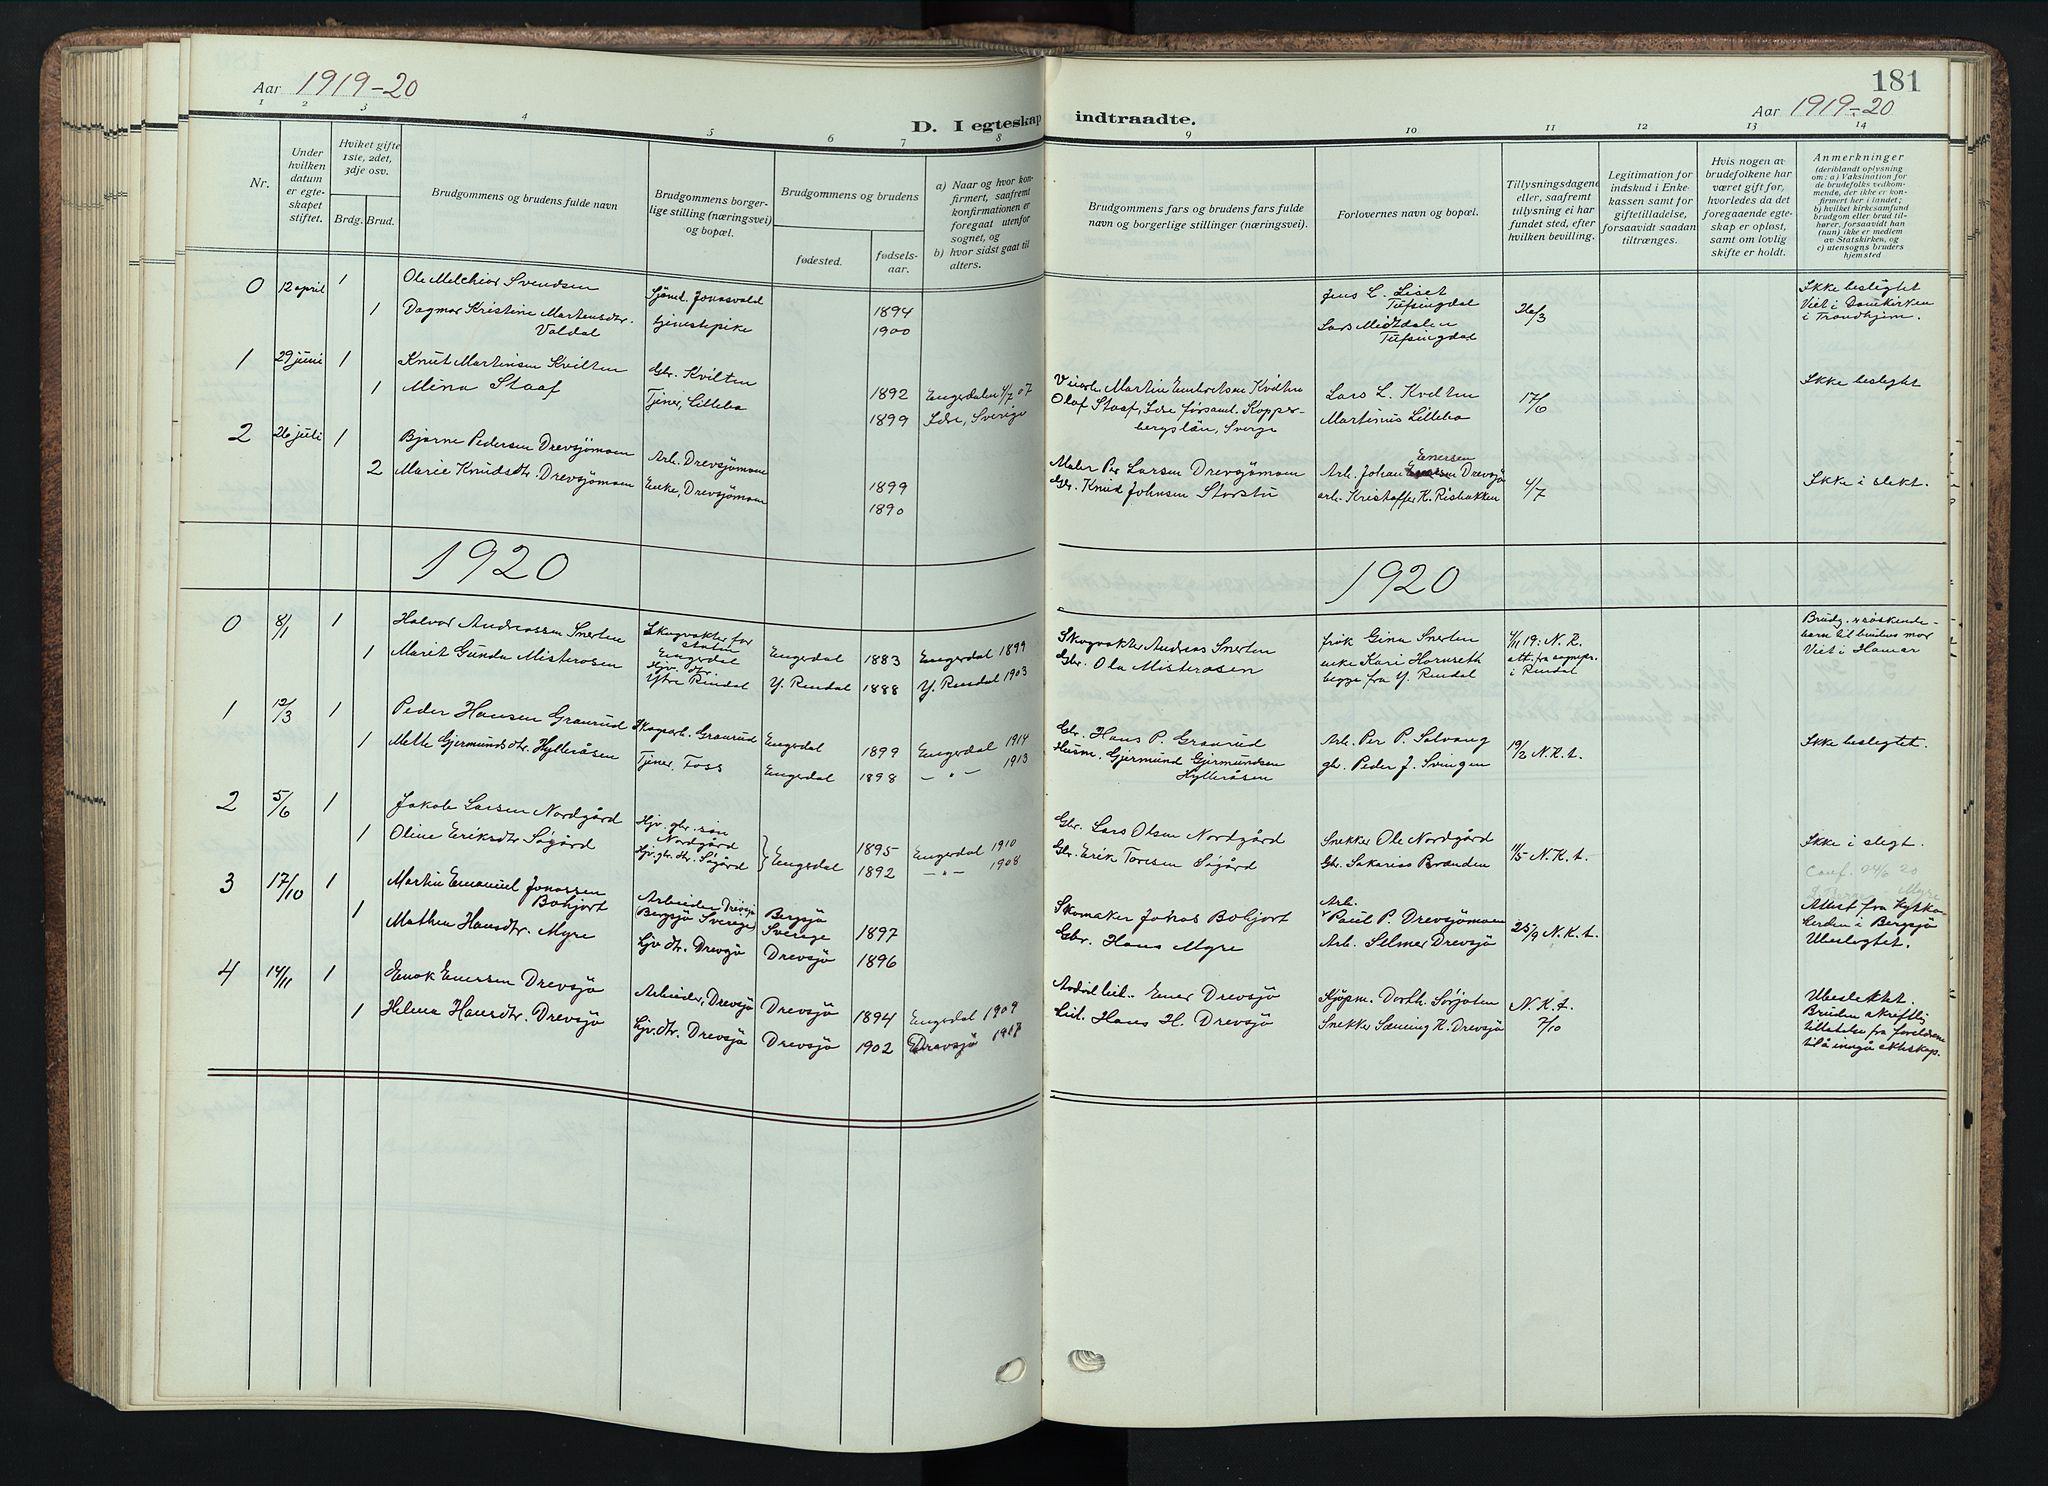 181
Aar 1919-20
D. I egteskap indtraadte.
Aar 1919-20
1 2 3 4 5 6 7 8 9 10 11 12 13 14
Nr.
Under hvilken datum er egteskapet stiftet.
Hviket gifte 1ste, 2det, 3dje osv.
Brdg. Brud.
Brudgommens og brudens fulde navn
Brudgommens borgerlige stilling (næringsvei) og bopæl.
Brudgommens og brudens
fødested.
fødselsaar.
a) Naar og hvor konfirmert, saafremt konfirmationen er foregaat utenfor sognet, og
b) hvor sidst gaat til alters.
Brudgommens fars og brudens fars fulde navn og borgerlige stillinger (næringsvei).
Forlovernes navn og bopæl.
Tillysningsdagene eller, saafremt tillysning ei har fundet sted, efter hvilken bevilling.
Legitimation for indskud i Enkekassen samt for giftetilladelse, forsaavidt saadan tiltrænges.
Hvis nogen av brudefolkene har været gift før, hvorledes da det foregaaende egteskap er opløst, samt om lovlig skifte er holdt.
Anmerkninger
(deriblandt oplysning om: a) Vaksination for de brudefolks vedkommende, der ikke er konfirmert her i landet; b) hvilket kirkesamfund brudgom eller brud tilhører, forsaavidt han (hun) ikke er medlem av Statskirken, og c) utensogns bruders hjemsted
0 12 april 1 Ole Melchior Svendsen Sjømd. Jonasvold 1894 Jens L. Liset Tufsingdal 26/3 Ikke beslegtet Viet i Domkirken i Trondhjem.
1 Dagmar Kristine Martensdtr. Valdal tjenestepike 1900 Lars Midtdalen Tufsingdal
1 29 juni 1 Knut Martinsen Kvilten Gbr. Kvilten 1892 Engerdalen 4/7 07 Martin Embretsen Kvilten Lars L. Kvilten 17/6 Ikke beslegtet
1 Mina Staaf Tjener, Lillebo 1899 Idre, Sverige Olof Staaf, Idre församl. Kopperbergslän, Sverge Martinus Lillebo
2 26 juli 1 Bjarne Pedersen Drevsjömoen Arb. Drevsjömoen 1899 Maler Per Larsen Drevsjømoen Arb. Johan Enersen Drevsjø 4/7 Ikke i slekt.
2 Marie Knudsdtr. Drevsjömoen Enke, Drevsjömoen 1890 Gbr. Knud Johnsen Storstu arb. Kristoffer K. Risbakken
1920 1920
0 8/1 1 Halvor Andreassen Snerten Skogvakter for staten Engerdal Engerdal 1883 Engerdal 1899 Skogvakter Andreas Snerten frøk Gina Snerten 4/11 19: N. R. Brudg. søskendebarn til brudens mor
1 Marit Gunda Misterosen Hjv. dtr Ytre Rindal Y. Rendal 1888 Y. Rendal 1903 Gbr. Ola Misterosen enke Kari Hornseth begge fra Y. Rendal att. fra sognepr. i Rendal Viet i Hamar
1 12/3 1 Peder Hansen Granrud Skogarb. Granrud Engerdal 1899 Engerdal 1914 Gbr. Hans P. Granrud Arb. Per P. Solvang 19/2 N.K.t. Ikke beslegtet.
1 Mette Gjermundsdtr. Hylleråsen Tjener, Foss Engerdal 1898 — " — 1913 Husm. Gjermund Gjermundsen Hylleråsen gbr. Peder J. Svingen
2 5/6 1 Jakob Larsen Nordgård Hjv. gbr. søn Nordgård Engerdal 1895 Engerdal 1910 Gbr. Lars Olsen Nordgård Snekker Ole Nordgård 11/5 N.K.t. Ikke i slegt.
1 Oline Eriksdtr Søgård Hjv. gbr. dtr. Søgård 1892 — " — 1908 Gbr. Erik Toresen Søgård Gbr. Sakarias Brænden
3 17/10 1 Martin Emanuel Jonassen Bohjort Arbeider Drevsjø (Bergsjö Sverige) Bergsjö Sverige 1897 Skomaker Jonas Bohjort Arb. Paul P. Drevsjømoen 25/9 N.K.t. Attest fra kyrkoherden i Bergsjö Ubeslegtet.
1 Mathea Hansdtr. Myre Hjv. dtr. Drevsjö Drevsjö 1896 Gbr. Hans Myre Arb. Selmer Drevsjö
4 14/11 1 Enok Enersen Drevsjö Arbeider, Drevsjö Drevsjö 1894 Engerdal 1909 Ener Drevsjö Kjøpm. Dorth. Sorjoten N.K.t. 7/10 Ubeslektet. Bruden skriftlig tillatelse fra foreldrene til å inngå ekteskap.
1 Helena Hansdtr. Drevsjö Hjv. dtr. Drevsjö Drevsjö 1902 Drevsjö 1917 Hans H. Drevsjö Snekker Sæming H. Drevsjö